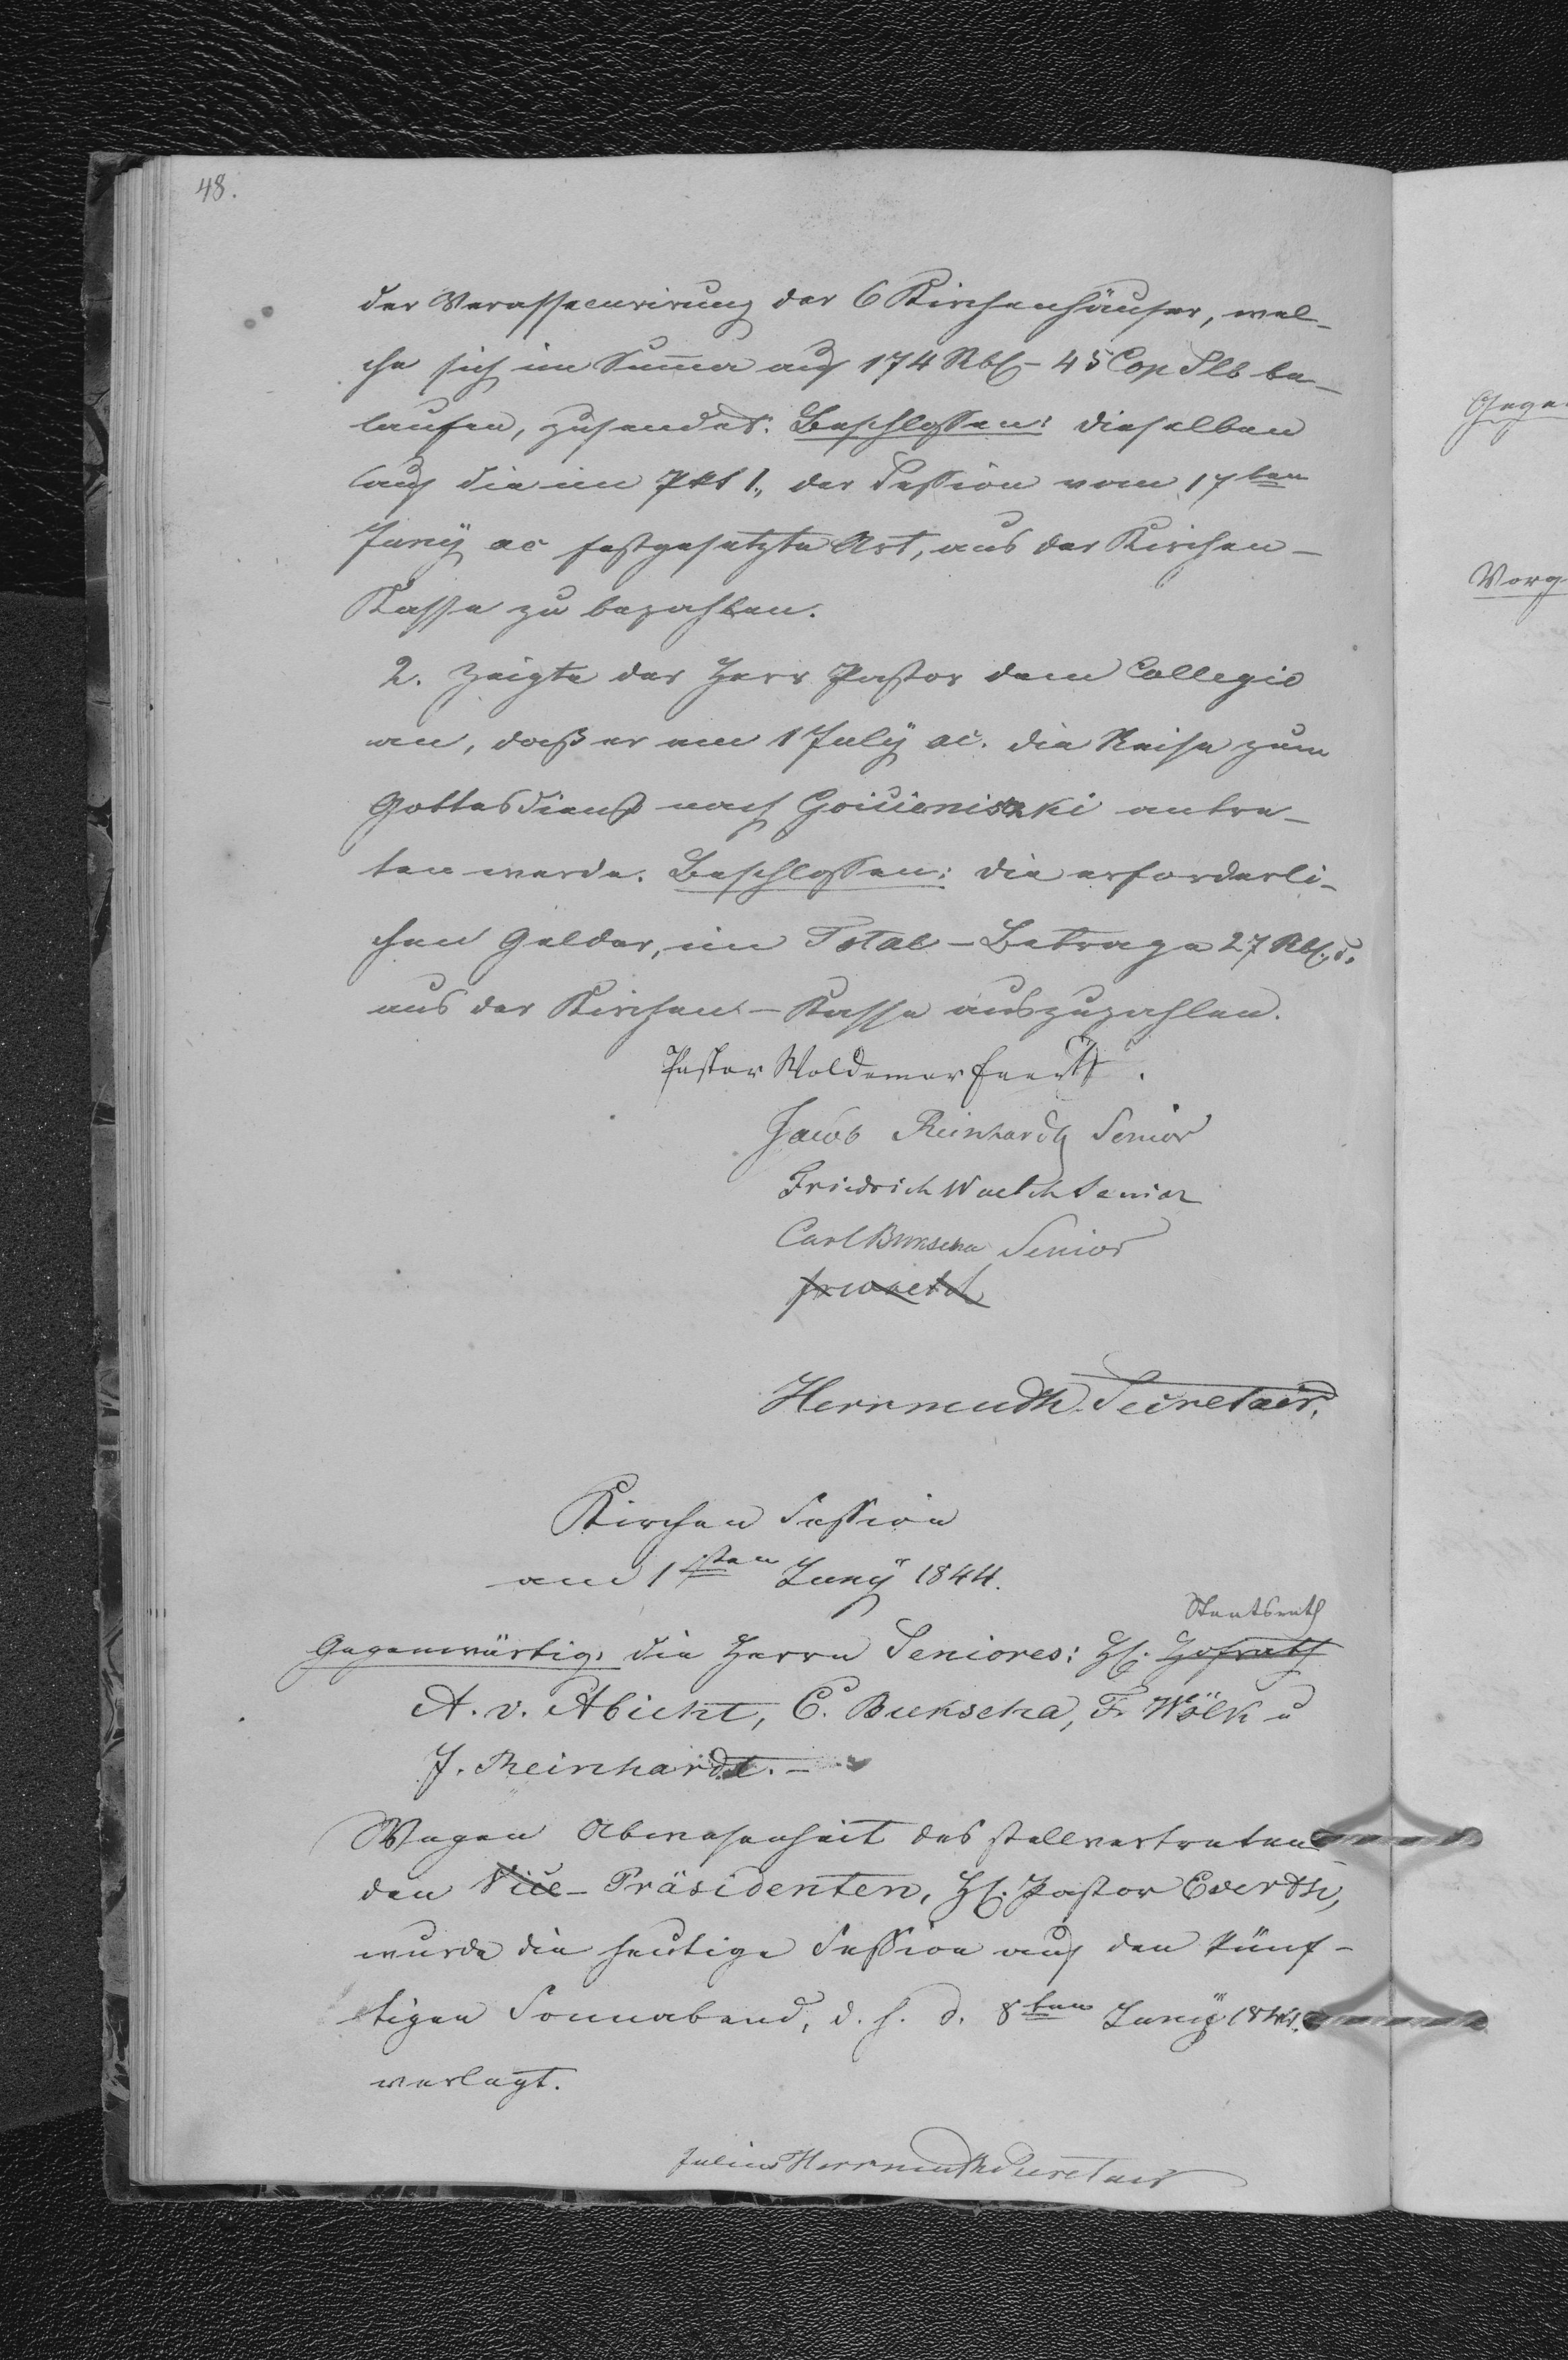 48.
der Verassecurirung der 6 Kirchenhäuser, wel-
che sich im Summa auf 174 Rbl - 45 Cop Slb be-
laufen, zusendet. Beschlossen: dieselben
auf die im Pkt 1., der Session vom 17ten
Juny ac festgesetzte Art, aus der Kirchen-
Kasse zu bezahlen.
2. Zeigte der Herr Pastor dem Collegio
an, daß er am 1 July ac. die Reise zum
Gottesdienst nach antre-
ten werde. Beschlossen: die erforderli-
chen Gelder, im Total-Betrage 27 Rbl. S.
aus der Kirchen-Kasse auszuzahlen.
Pastor Woldemar Everth.
Jacob Reinhardt Senior
Friedrich Waelck Senior
Carl Bukscha Senior
Herrmuth Secretair.
Kirchen Session
am 1sten Juny 1844.
Staatsrath
Gegenwärtig: die Herrn Seniores: H. Hofrath
A. v. Abicht, C. Bukscha, F. Wölk u
J. Reinhardt.-
Wegen Abwesenheit des stellvertreten-
den Vice-Präsidenten, H. Pastor Everth,
wurde die heutige Session auf den künf-
tigen Sonnabend, d. h. d. 8ten Juny 1844.
verlegt.
Julius Herrmuth Secretair
Gege
Vorg